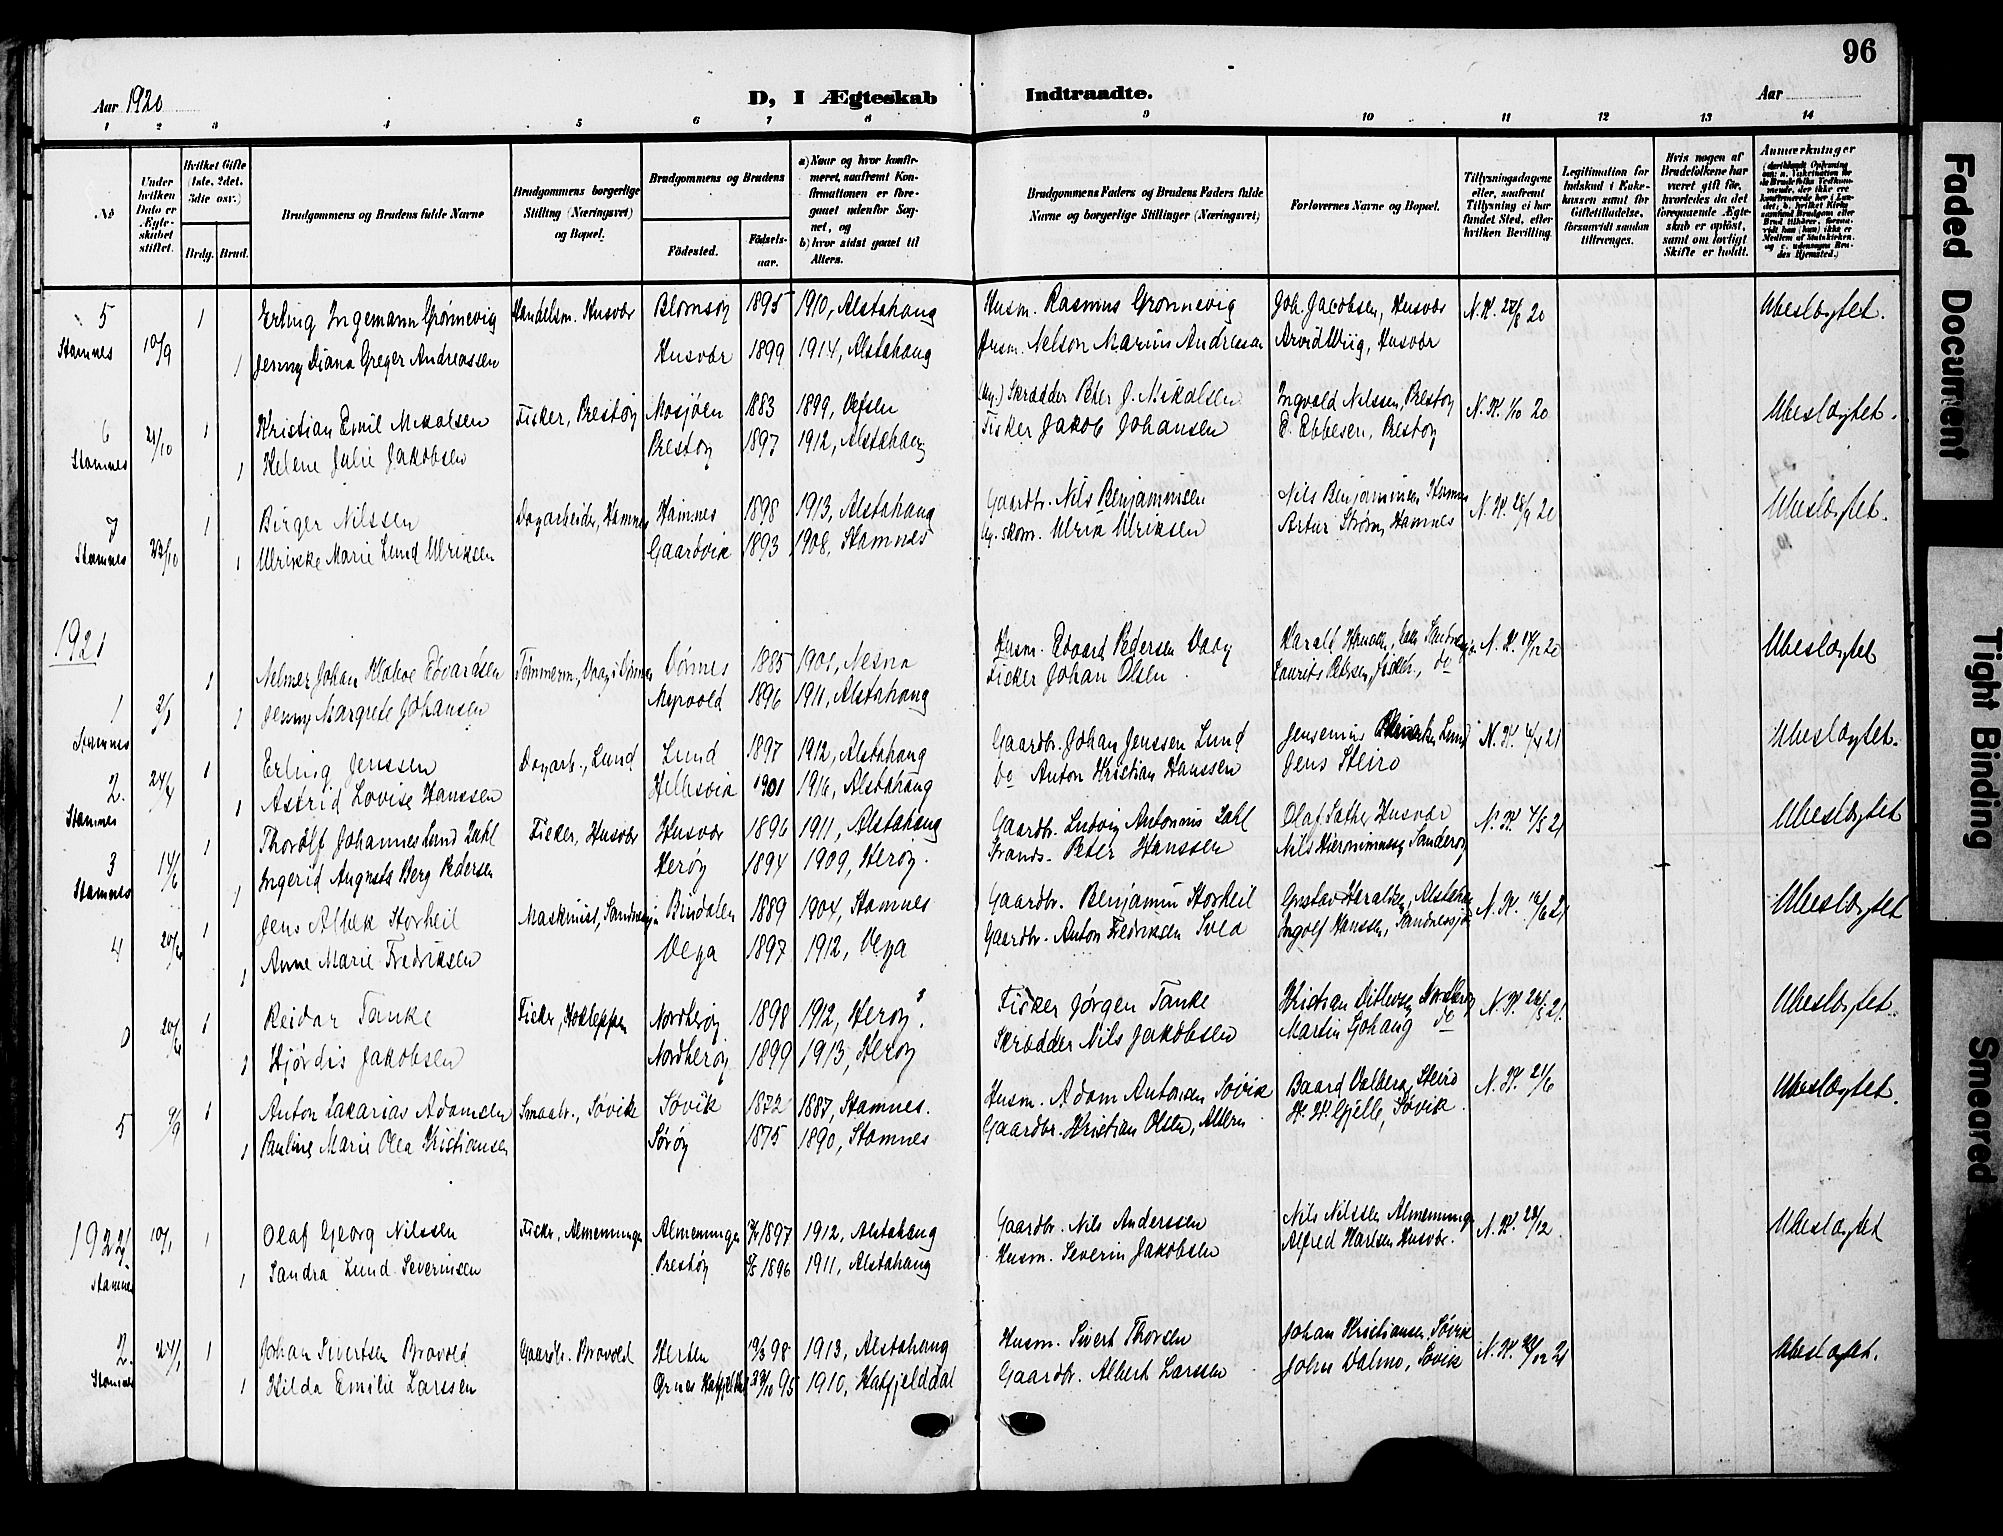 96
Aar 1920
D, I Ægteskab Indtraadte.
Aar
1 2 3 4 5 6 7 8 9 10 11 12 13 14
No
Under hvilken Dato er Ægteskabet stiftet.
Hvilket Gifte (1ste, 2det, 3die osv.)
Brdg. Brud.
Brudgommens og Brudens fulde Navne
Brudgommens borgerlige Stilling (Næringsvei) og Bopæl.
Brudgommens og Brudens
Födested. Födselsaar.
a) Naar og hvor konfirmeret, saafremt Konfirmationen er foregaaet udenfor Sognet, og
b) hvor sidst gaaet til Alters.
Brudgommens Faders og Brudens Faders fulde Navne og borgerlige Stillinger (Næringsvei)
Forlovernes Navne og Bopæl.
Tillysningsdagene eller, saafremt Tillysning ei har fundet Sted, efter hvilken Bevilling.
Legitimation for Indskud i Enkekassen samt for Giftetilladelse, forsaavidt saadan tiltrænges.
Hvis nogen af Brudefolkene har været gift för, hvorledes da det foregaaende Ægteskab er oplöst, samt om lovligt Skifte er holdt.
Anmærkninger
5 Stamnes 10/9 1 Erling Ingemann Grønnevig Handelsm. Husvær Blomsøy 1895 1910, Alstahaug Husm. Rasmus Grønnevig Joh. Jacobsen, Husvær N.K. 28/8 20 Ubeslægtet.
1 Jenny Diana Greger Andreassen Husvær 1899 1914, Alstahaug Husm. Nelson Marius Andreassen Arvid Wiig, Husvær
6 Stamnes 24/10 1 Kristian Emil Mikalsen Fisker, Prestøy Mosjøen 1883 1899, Vefsen Skrædder Peter J. Mikalsen Ingvald Nilssen, Prestøy N.K. 1/10 20 Ubeslægtet.
1 Helene Julie Jakobsen Prestøy 1897 1912, Alstahaug Fisker Jakob Johansen E. Ebbesen, Prestøy
7 Stamnes 23/10 1 Birger Nilssen Dagarbeider, Hamnes Hamnes 1898 1913, Alstahaug Gaardbr. Nils Benjaminsen Nils Benjaminsen Hamnes N.K. 28/9 20 Ubeslægtet.
1 Ulrikke Marie Lund Ulriksen Gaardvik 1893 1908, Stamnes Ulrik Ulriksen Artur Strøm, Hamnes
1921
1 Stamnes 2/1 1 Johan Edvardsen Dønnes 1885 1901, Nesna Husm. Edvard Pedersen Harald N.K. 14/12 20 Ubeslægtet
1 Jenny Margrete Johansen 1896 1911, Alstahaug Fisker Johan Olsen Laurits Petersen, do
2. Stamnes 24/4 1 Erling Jenssen Dagarb., Lund Lund 1897 1912, Alstahaug Gaardbr. Johan Jenssen Lund Jensenius Lund N.K. 21 Ubeslægtet.
1 Astrid Lovise Hanssen Hellesvik 1901 1916, Alstahaug do Anton Kristian Hanssen Jens Steiro
3 Stamnes 14/6 1 Thorolf Johannes Lund Zahl Fisker, Husvær Husvær 1896 1911, Alstahaug Gaardbr. Ludvig Antonius Zahl Olaf Sæther Husvær N.K. 4/5 21 Ubeslægtet
1 Ingerid Augusta Berg Pedersen Herøy 1894 1909, Herøy. Strands. Peter Hanssen Nils Hieronimussen, Sanderøy
4 20/6 1 Jens Albek Storheil Maskinist, Sandnessjøen Bindalen 1889 1904, Stamnes Gaardbr. Benjamin Storheil Gustav Heraldsen, Alstahaug N.K. 12/6 21 Ubeslægtet
1 Anne Marie Fredriksen Vega 1897 1912, Vega Gaardbr. Anton Fredriksen Ingolf Hanssen, Sandnessjøen
0 20/6 1 Reidar Tanke Fisker, Nordherøy 1898 1912, Herøy. Fisker Jørgen Tanke Kristian Ditlevsen, Nordherøy N.K. 26/5 21. Ubeslægtet.
1 Hjørdis Jakobsen Nordherøy 1899 1913, Herøy Skrædder Nils Jakobsen Martin Gøhaug do
5 4/9 1 Anton Zakarias Adamsen Smaabr., Søvik Søvik 1872 1887, Stamnes. Husm. Adam Antonsen Søvik Baard Valberg, Steiro N.K. 21/6 Ubeslægtet.
1 Pauline Marie Olea Kristiansen Sørøy 1875 1890, Stamnes Gaardbr. Kristian Olsen, H. H. Gjelle, Søvik.
1922 Stamnes 10/1 1 Olaf Georg Nilssen Fisker, Almenningen Almenningen 1897 1912, Alstahaug Gaardbr. Nils Anderssen Nils Nilssen Almenningen N.K. 28/12. Ubeslægtet
1 Sandra Lund Severinsen Prestøy 1896 1911, Alstahaug Husm. Severin Jakobsen Alfred Karlsen Husvær.
2. Stamnes 24/1 1 Johan Sivertsen Bravold Gaardbr. Bravold Herten 19/3 98 1913, Alstahaug Husm. Sivert Thorsen Johan Kristiansen, Søvik N.K. 21 Ubeslægtet.
1 Hilda Emilie Larssen Ørnes Hatfjelddal 95 1910, Hatfjelddal Gaardbr. Albert Larssen John Dalmo, Søvik
Faded Document
Tight Binding
Smeared